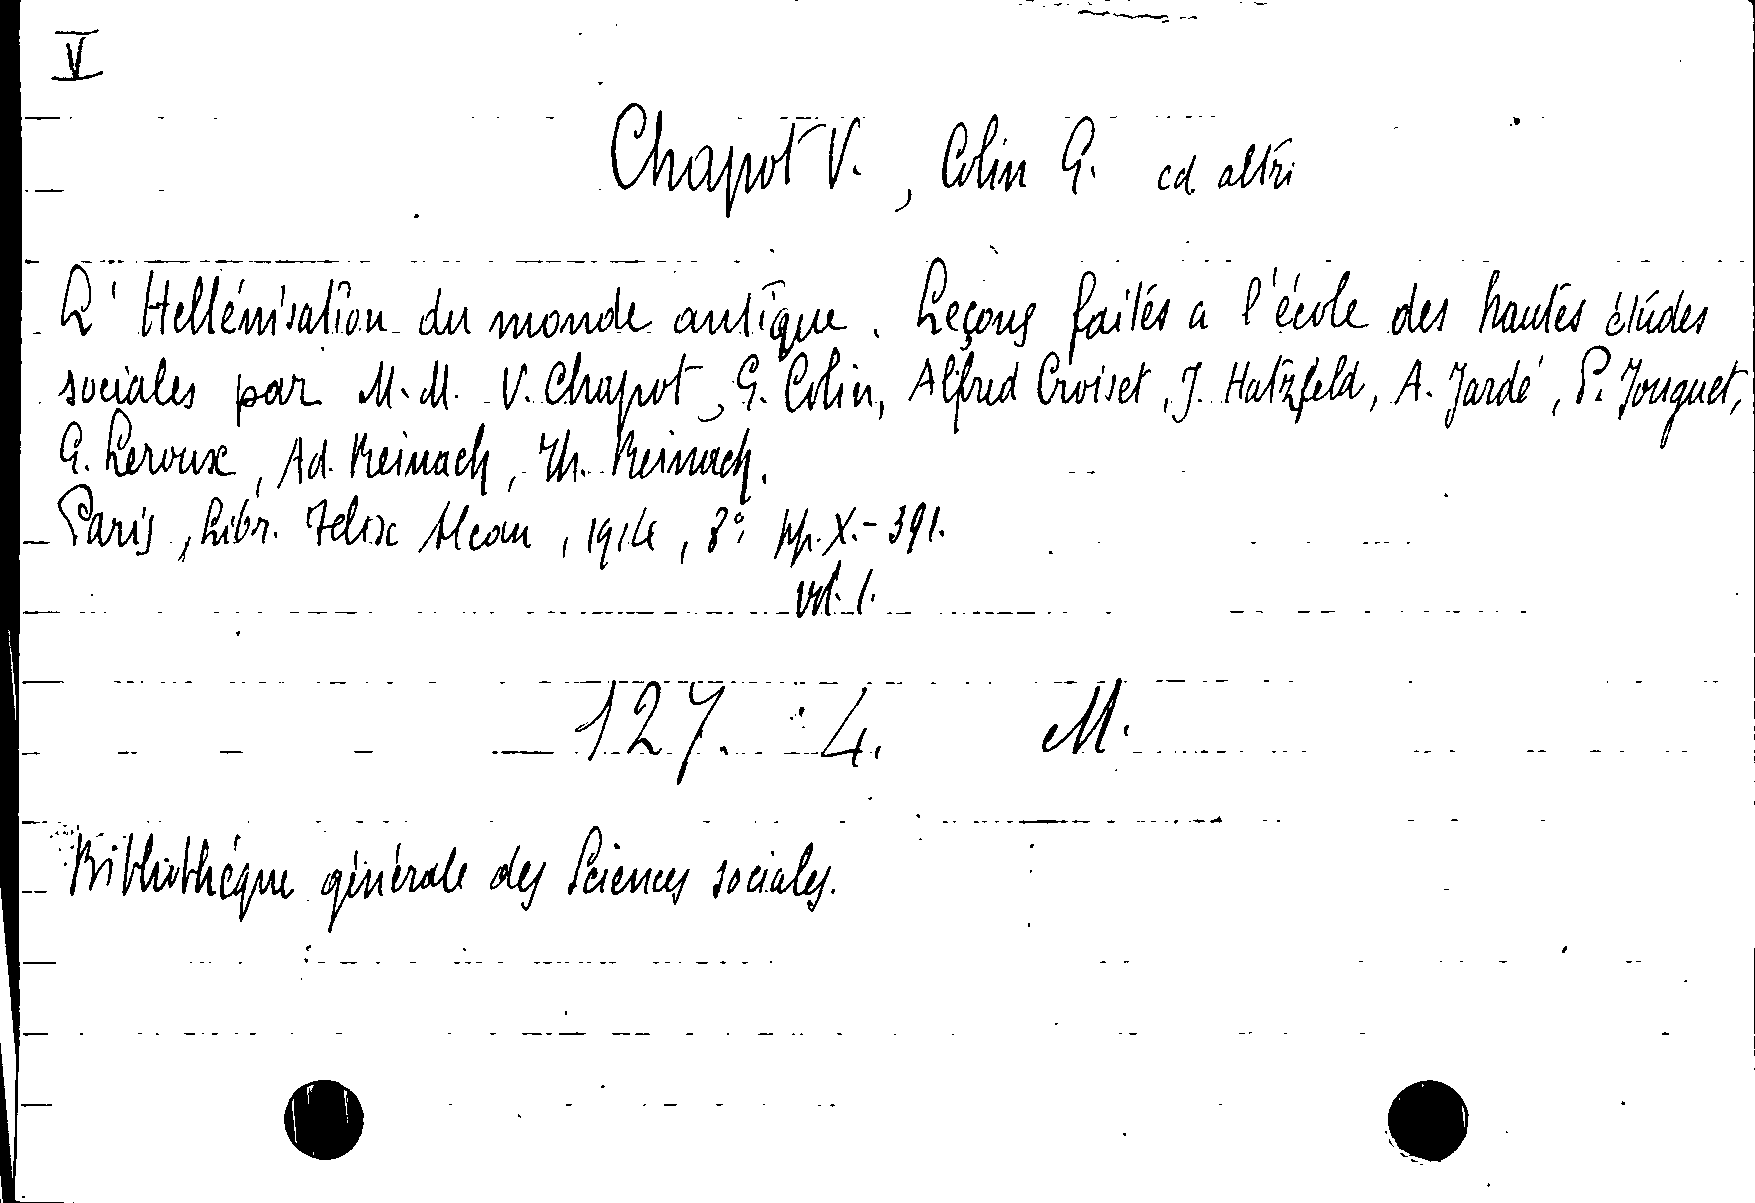 V
Chapot V., Colin G. ed altri
L'Hellénisation du monde antique. Leçons faites a l'école des hautes études
sociales par M.M. V. Chapot, G. Colin, Alfred Croiset, J. Hatzfeld, A. Jardé, P. Jouguet,
G. Leroux, Ad. Reinach, Th. Reinach.
Paris, Libr. Felix Alcan, 1914, 8° pp. X.-391.
vol. 1.
127. 4. M.
Bibliothéque générale des Sciences sociales.